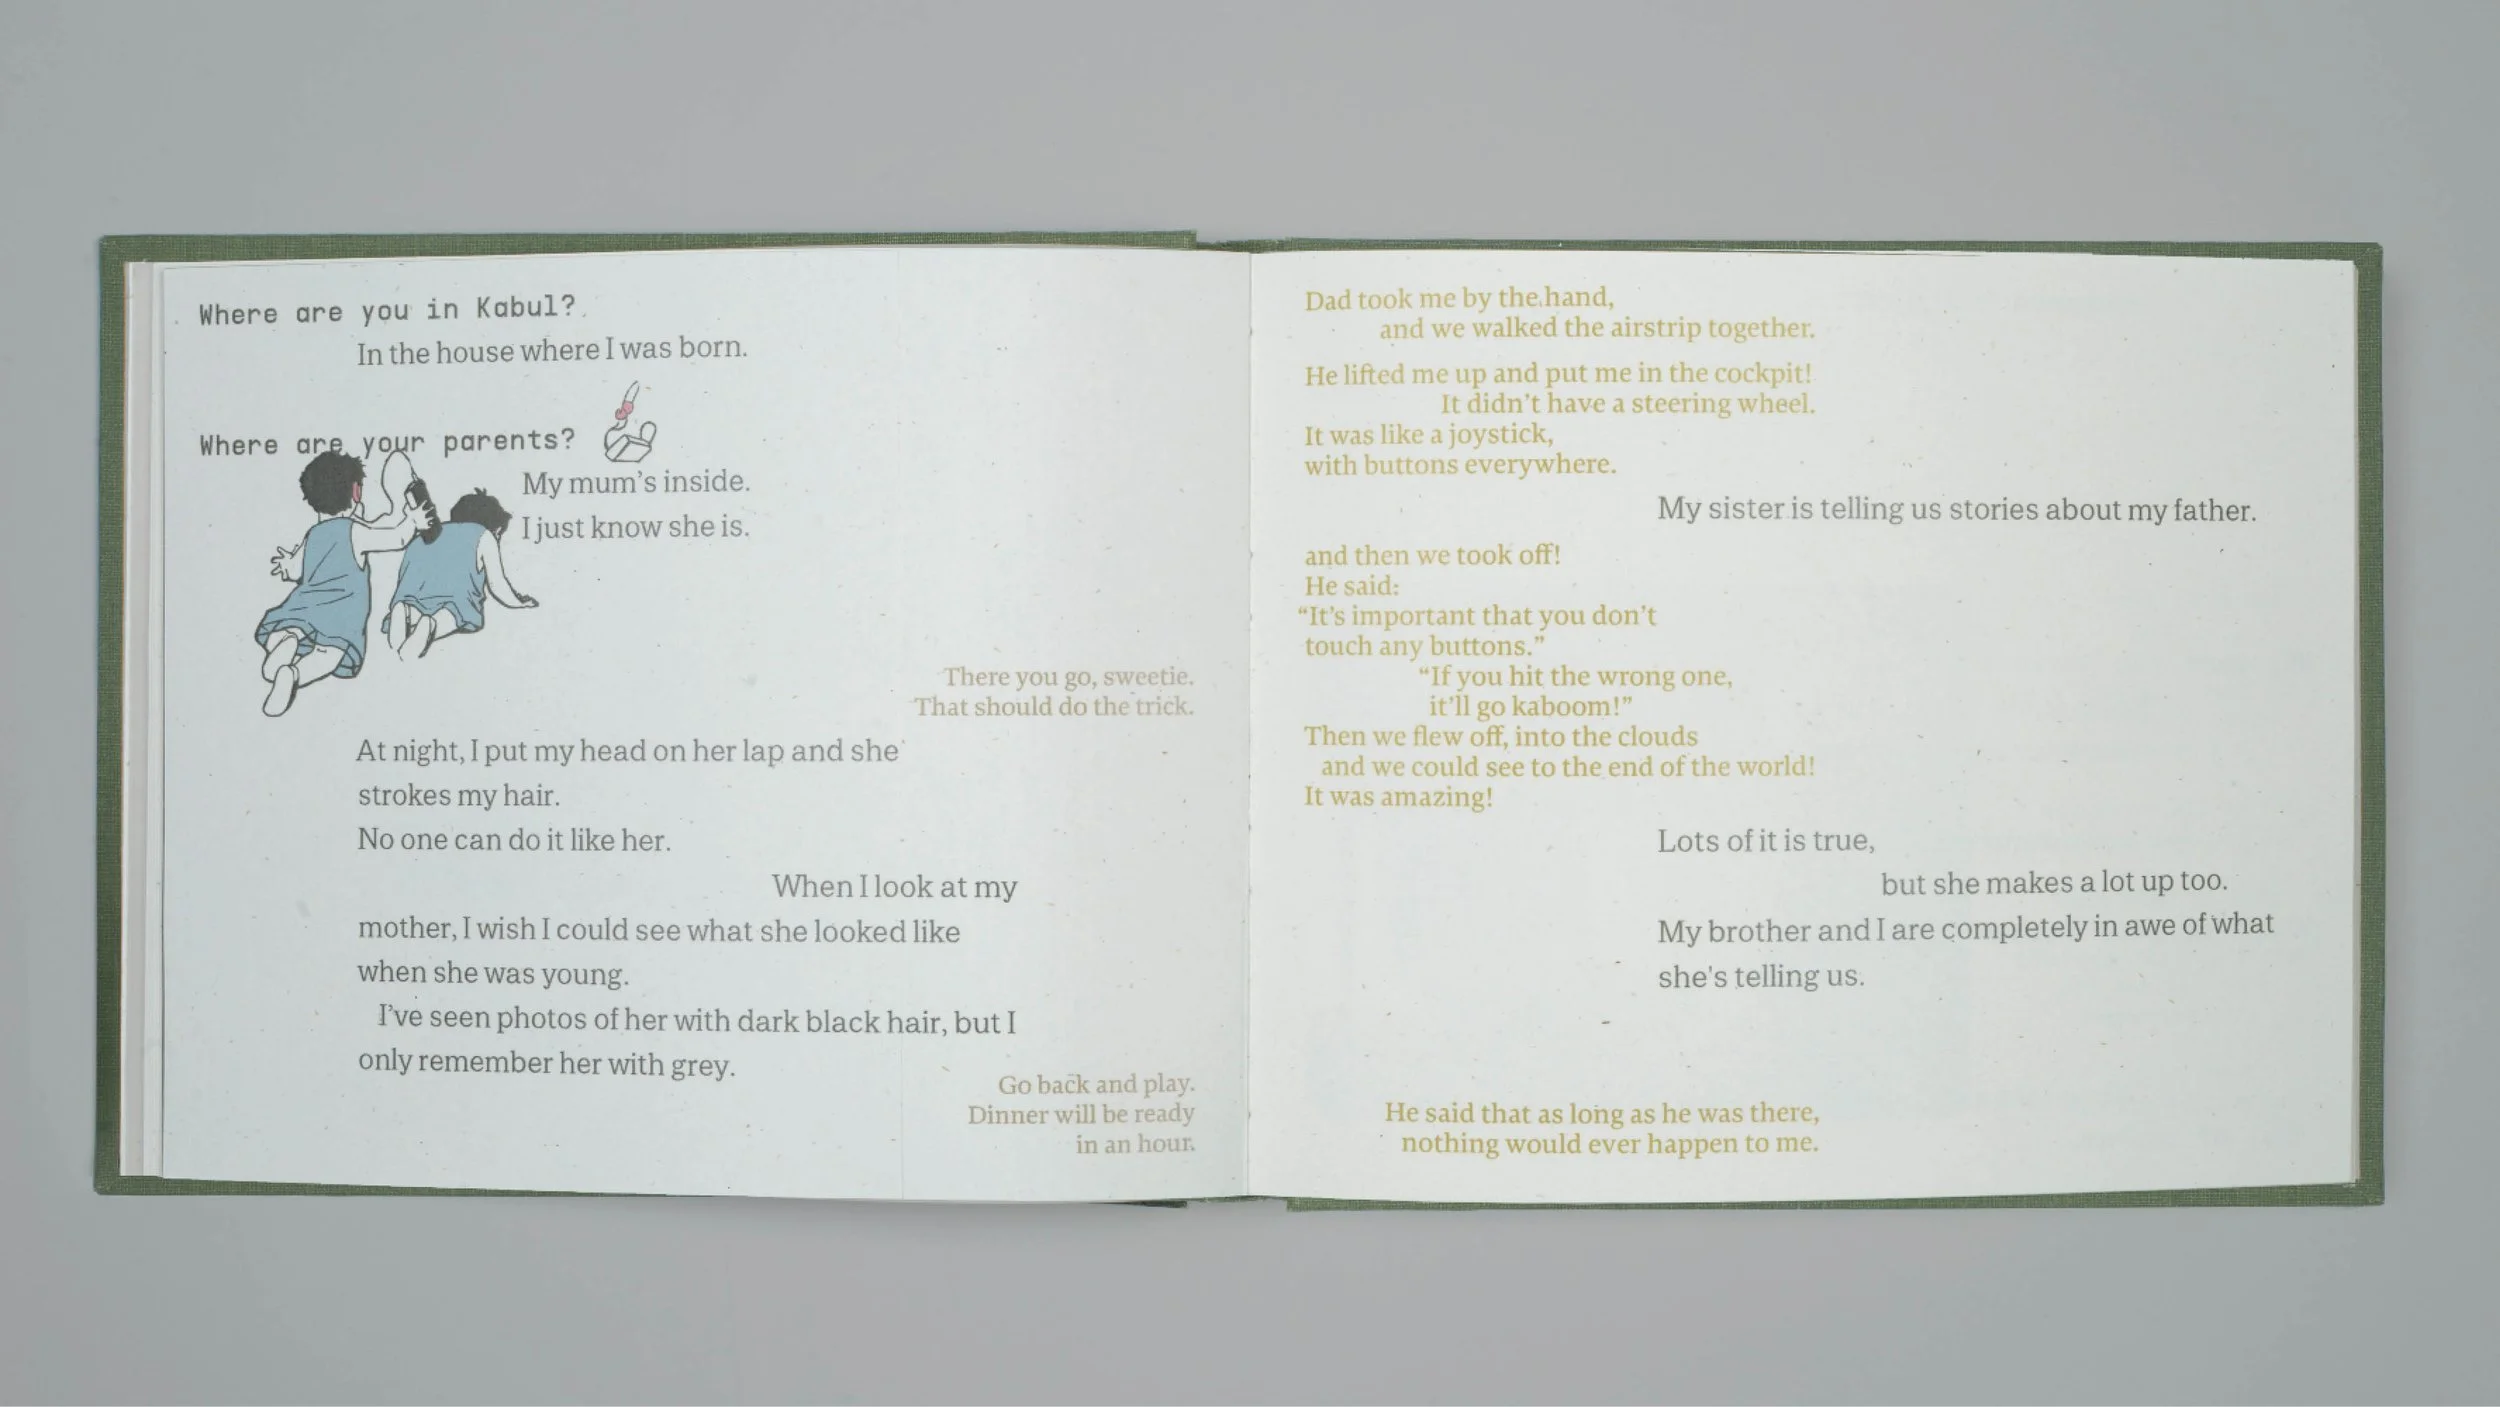 Where are you in Kabul?
In the house where I was born.
Where are your parents?
My mum's inside.
I just know she is.
There you go, sweetie.
That should do the trick.
At night, I put my head on her lap and she
strokes my hair.
No one can do it like her.
When I look at my
mother, I wish I could see what she looked like
when she was young.
I've seen photos of her with dark black hair, but I
only remember her with grey.
Go back and play.
Dinner will be ready
in an hour.
Dad took me by the hand,
and we walked the airstrip together.
He lifted me up and put me in the cockpit!
It didn't have a steering wheel.
It was like a joystick,
with buttons everywhere.
My sister is telling us stories about my father.
and then we took off!
He said:
“It's important that you don't
touch any buttons.”
“If you hit the wrong one,
it'll go kaboom!”
Then we flew off, into the clouds
and we could see to the end of the world!
It was amazing!
Lots of it is true,
but she makes a lot up too.
My brother and I are completely in awe of what
she's telling us.
He said that as long as he was there,
nothing would ever happen to me.